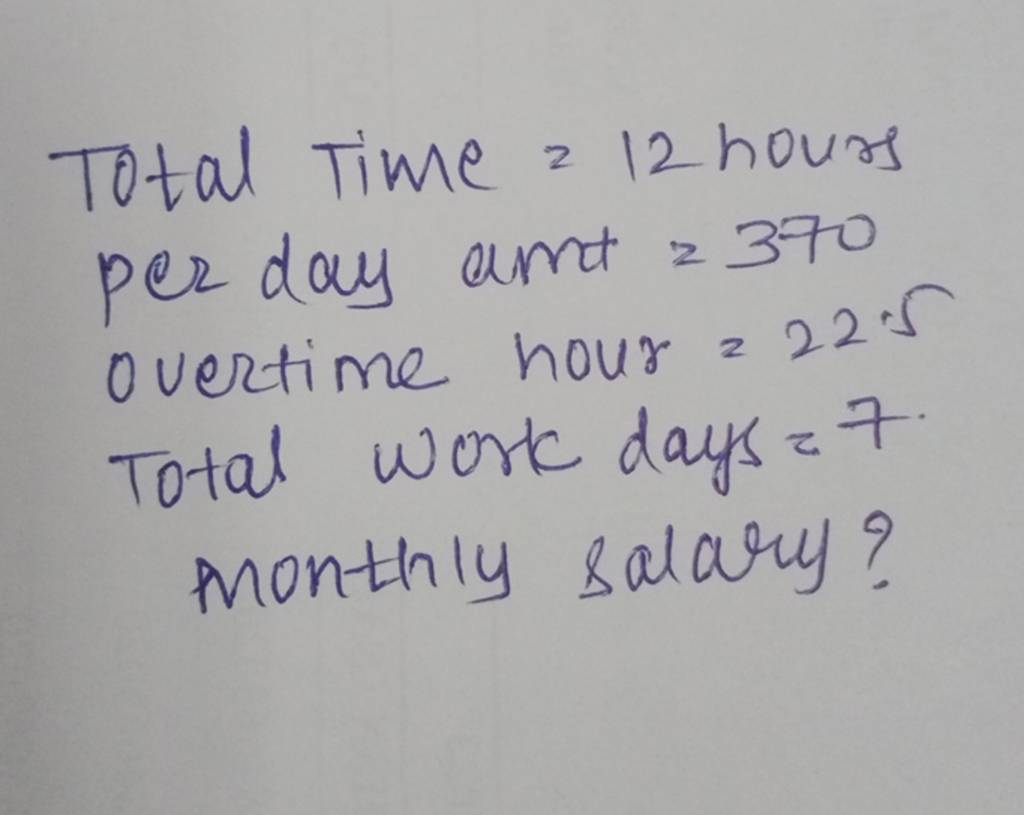 Total Time = 12 hours
per day amt = 370
overtime hour = 22.5
Total work days = 7.
Monthly salary?